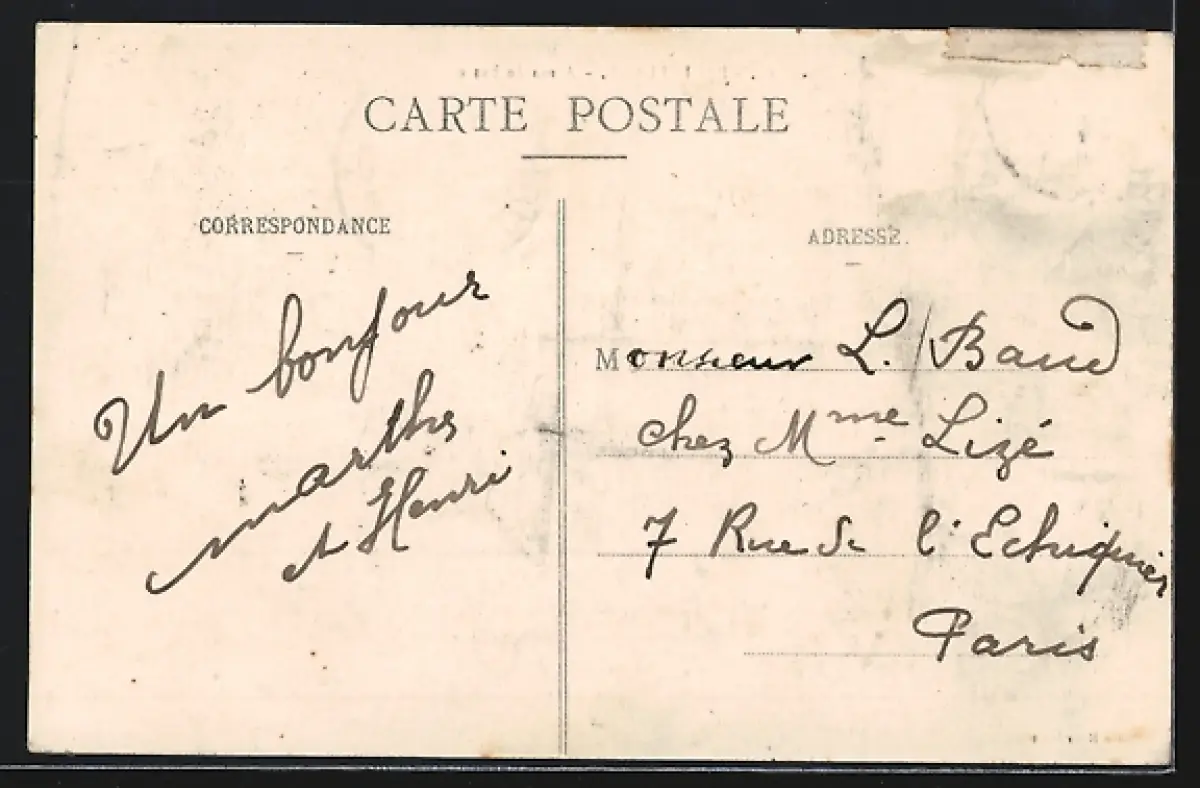 CARTE POSTALE
CORRESPONDANCE
ADRESSE.
Un bonjour
marthe
et Henri
Monsieur L. Baud
chez Mme Lizé
7 Rue de l'Echiquier
Paris